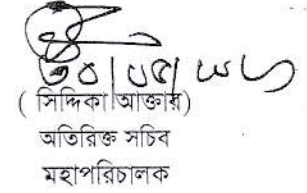 ( সিদ্দিকা আক্তার)
অতিরিক্ত সচিব
মহাপরিচালক